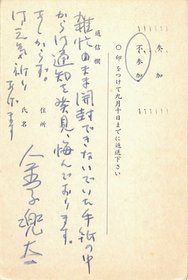 参加
不参加
○印をつけて九月十日までに返送下さい
通信欄
雑忙のまま開封できないでいた手紙の中
から御通知を発見、悔んでおります。
あしからず。
御元気を祈り
あげます
住所
氏名
金子兜太